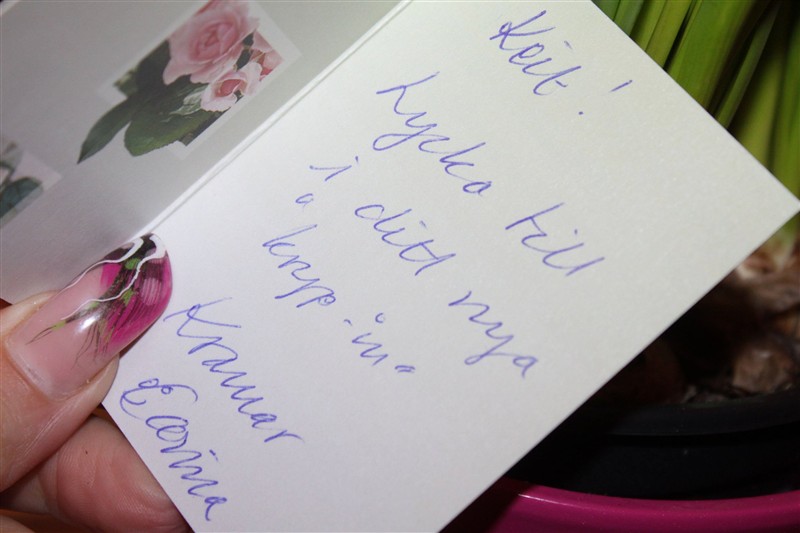 Keit!
Lycka till
i ditt nya
"kryp-in"
Kramar
Carina